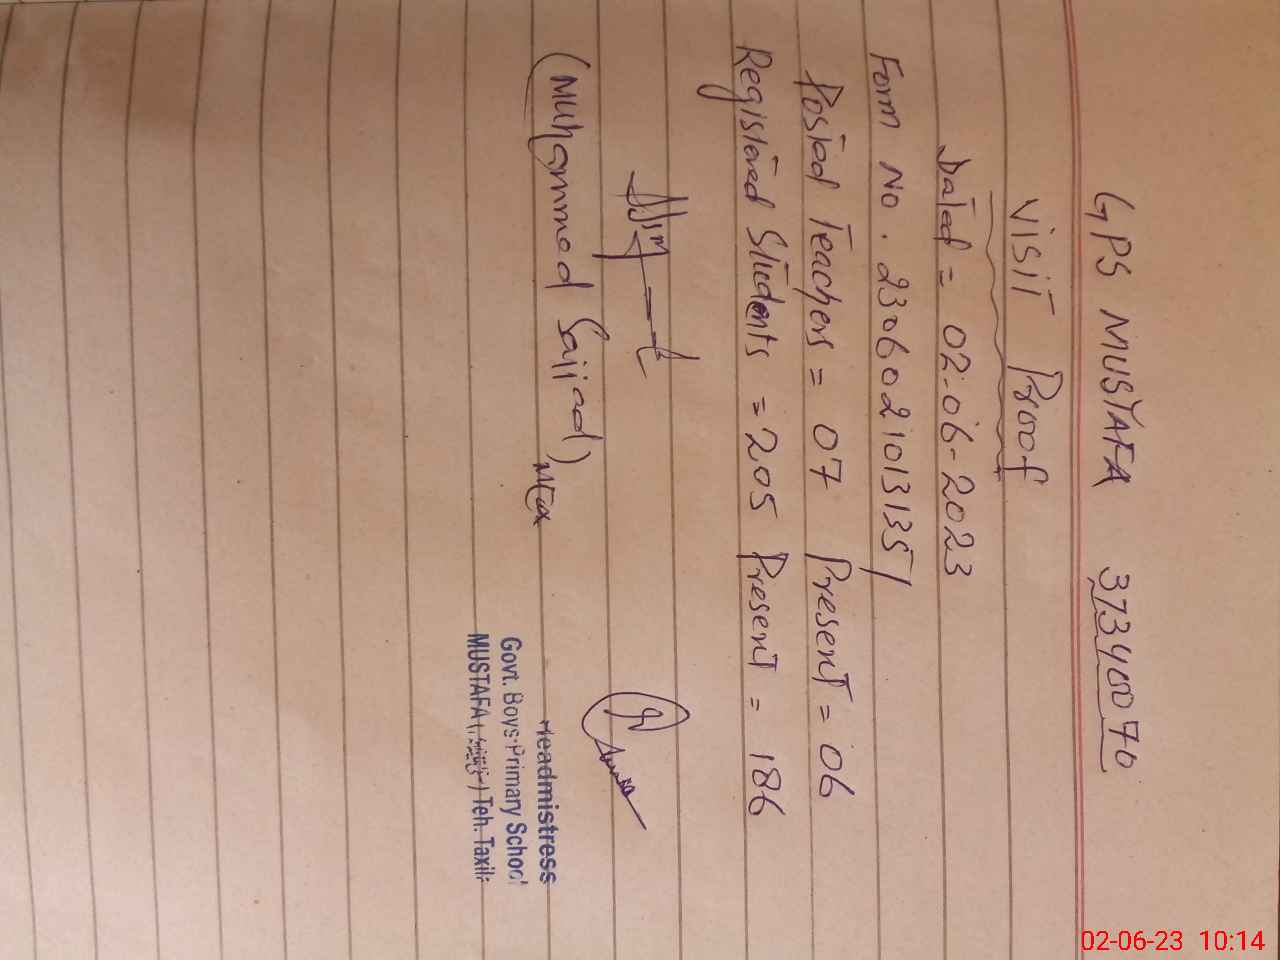 GPS MUSTAFA 37340070
Visit Proof
Dated = 02-06-2023
Form No. 23060210131351
Postad Teachers = 07 Present = 06
Registered Students = 205 Present = 186
(Muhammad Sajjad)
MEA
Headmistress
Govt. Boys Primary School
MUSTAFA Teh. Taxila
02-06-23 10:14